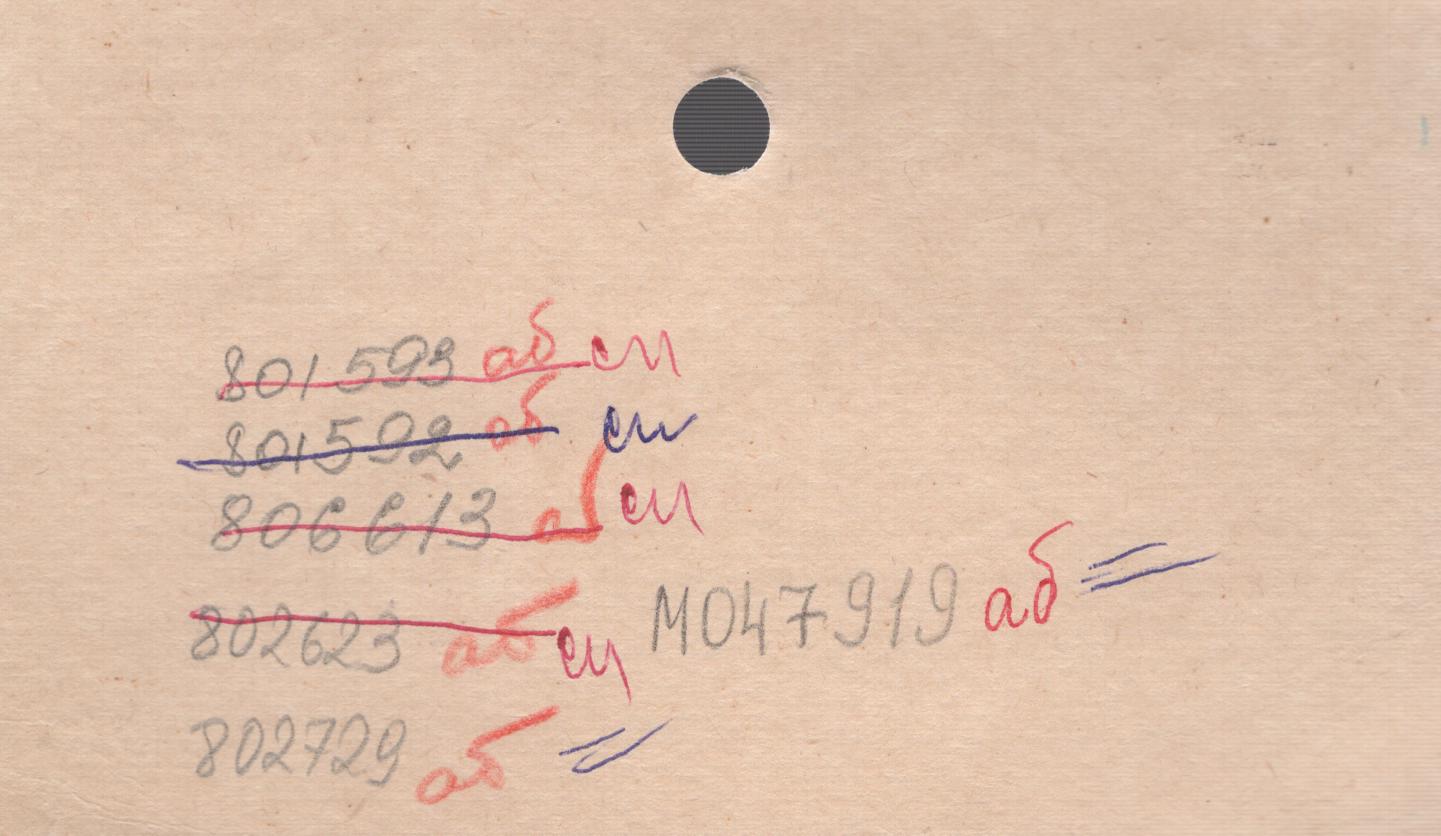 801593 аб сп
801592 аб сп
806613 аб сп
802623 аб сп
М047919 аб =
802729 аб =